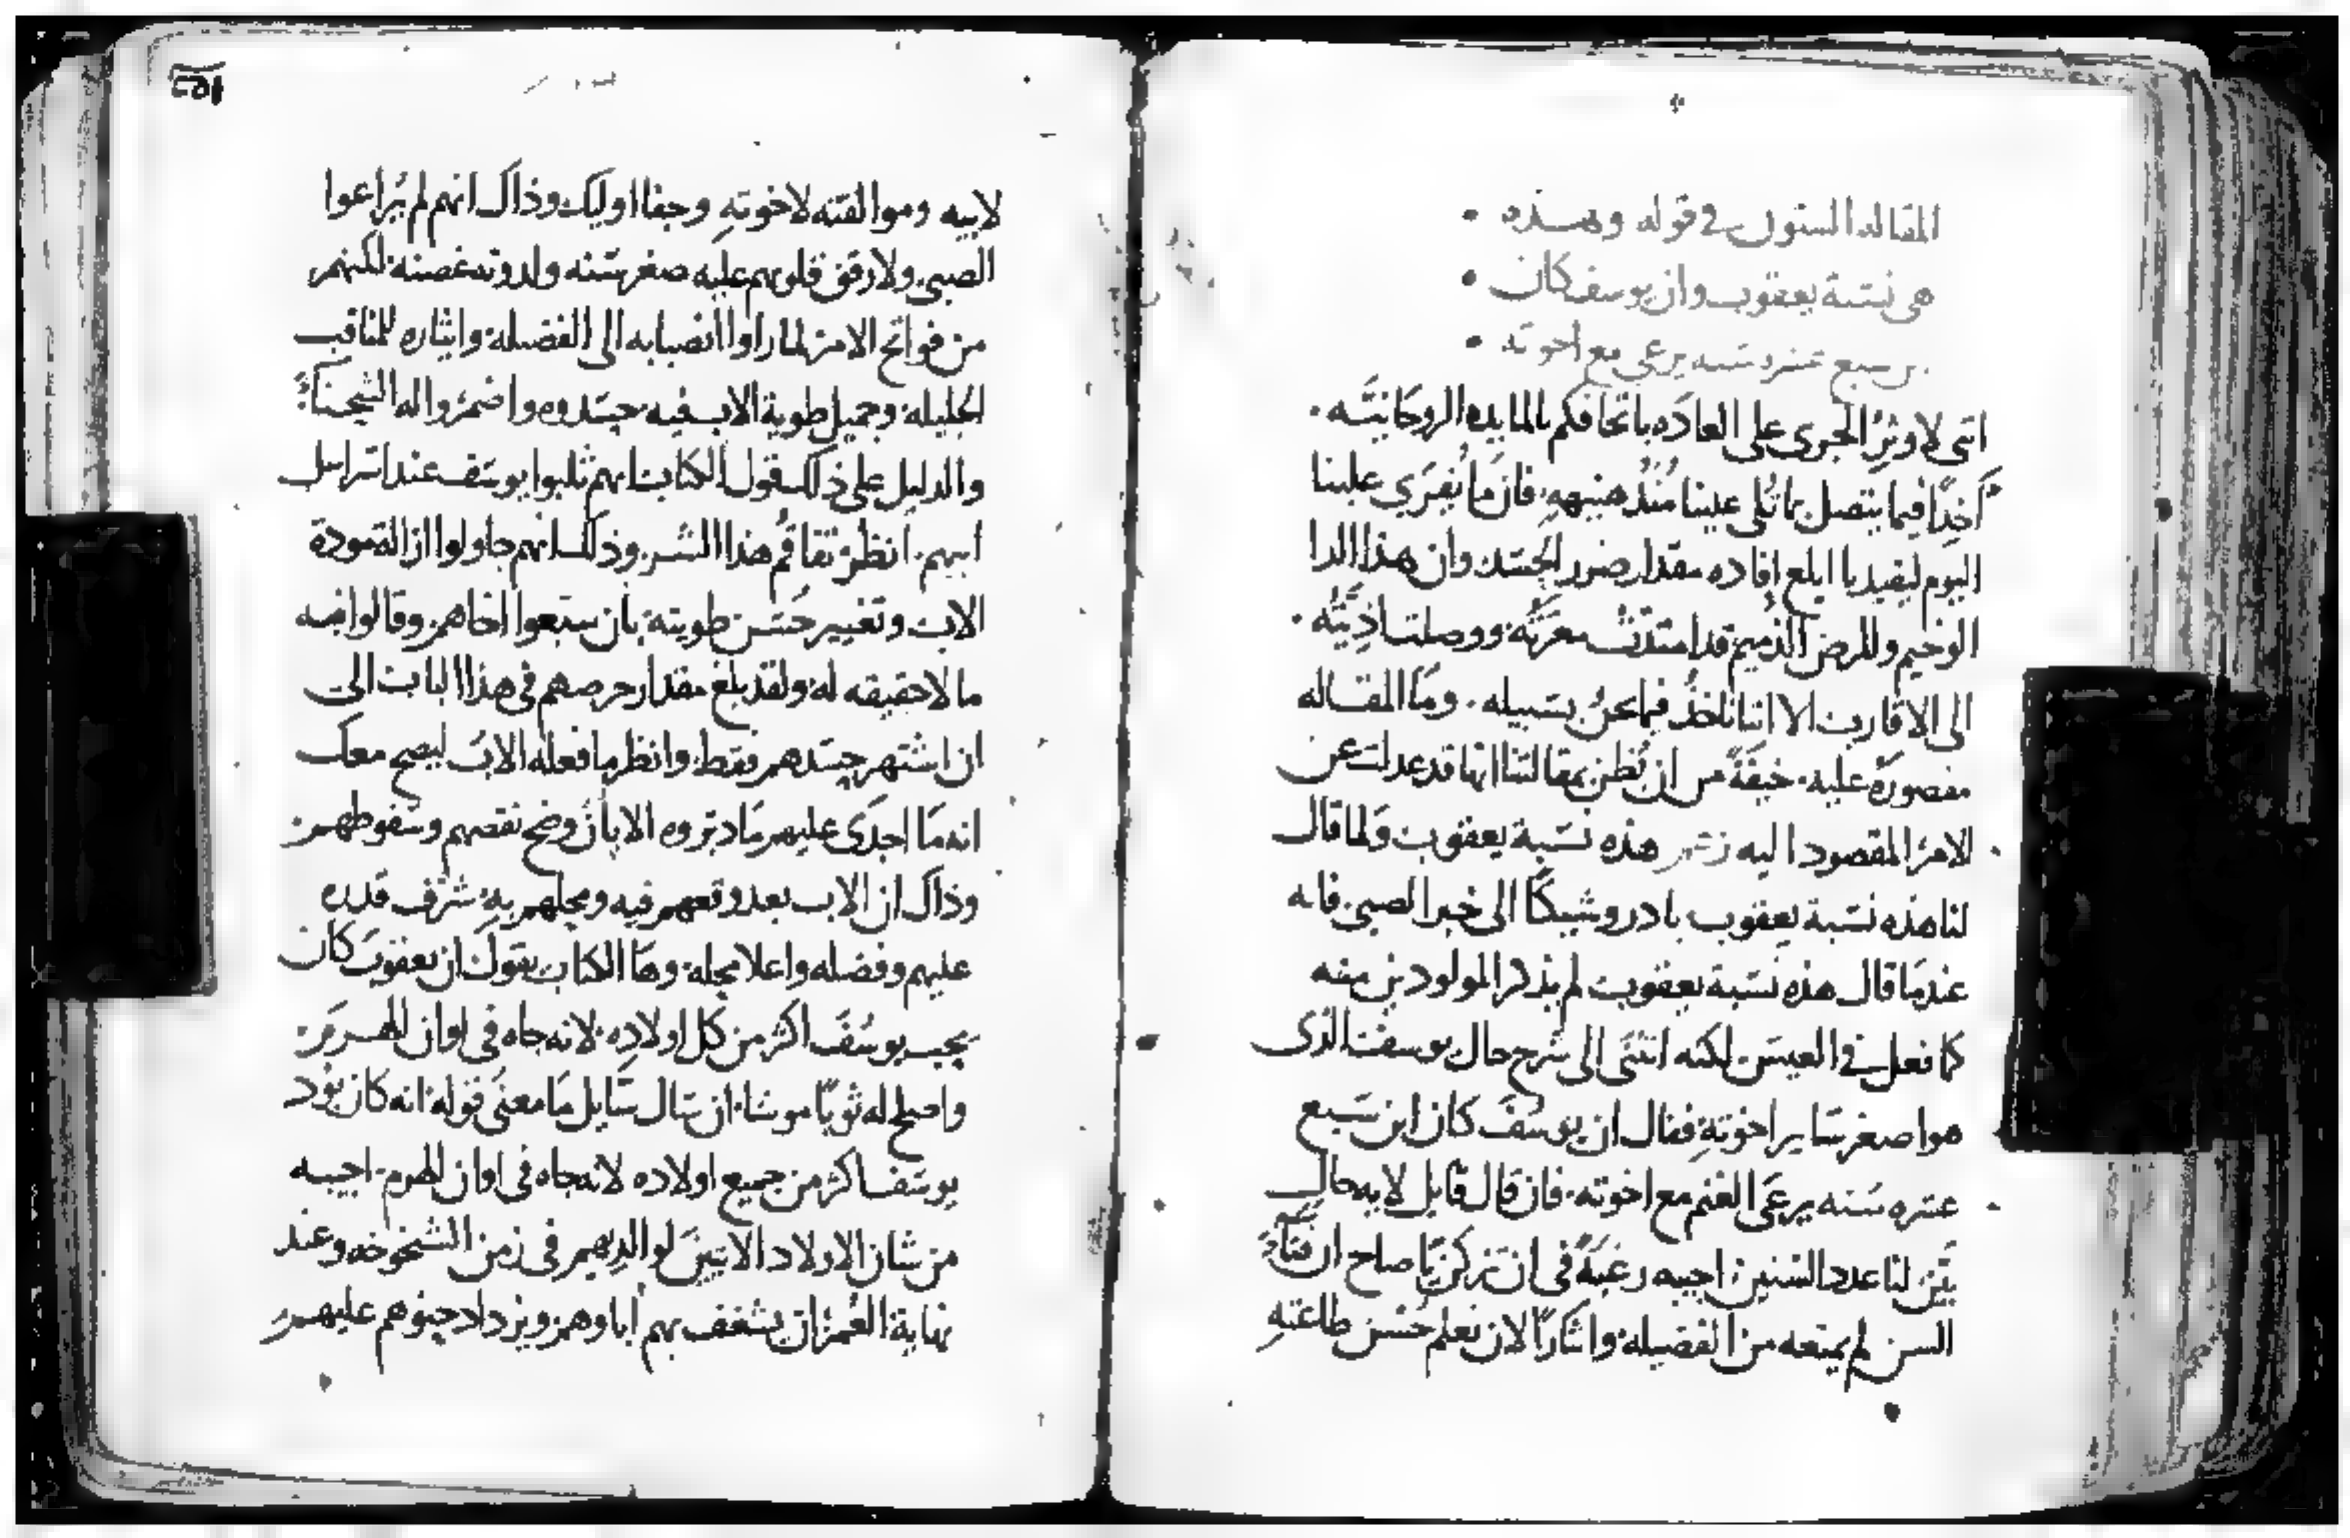 المقاله الستون في قوله وهذه
هي نسبة يعقوب وان يوسف كان
بن سبع عشره سنه يرعى مع اخوته
انني لاوثر الجري على العاده باتحافكم بالمايده الروحانيه
آخذا فيما يتصل بما تلي علينا منذ هنيهه فان ما نُقرى علينا
اليوم ليفيدنا ابلغ افاده مقدار ضرر الحسد وان هذا الدا
الوخيم والمرض الذميم قد امتدت معرته ووصلت اذيته
الى الاقارب الا اننا ناخذ فيما نحن بسبيله وما المقاله
مقصوره عليه خيفة من ان نظن بمقالتنا انها قد عدلت عن
الامر المقصود اليه هذه نسبة يعقوب ولما قال
لنا هذه نسبة يعقوب بادر وشيكا الى خبر الصبي فانه
عندما قال هذه نسبة يعقوب لم يذكر المولودين منه
كما فعل في العيس لكنه انثنى الى شرح حال يوسف الذي
هو اصغر ساير اخوته فقال ان يوسف كان ابن سبع
عشره سنه يرعى الغنم مع اخوته فان قال قايل لايه حال
بين لنا عدد السنين اجيبه رغبة في ان تزكن يا صاح ان فتاء
السن لم يمنعه من الفضيله وايثارا لان نعلم حُسن طاعته
٢٥١
لابيه وموالفته لاخوته وجفا اوليك وذاك انهم لم يُراعوا
الصبي ولا رقق قلوبهم عليه صغر سنه ولدونه غصنه لكنهم
من فواتح الامر لما راوا انصبابه الى الفضيله وايثاره للمناقب
الجليله وجميل طوية الاب فيه حسدوه واضمروا له الشحناء
والدليل على ذلك قول الكتاب انهم ثلبوا يوسف عند اسراييل
ابيهم انظر تفاقُم هذا الشر وذلك انهم حاولوا ازالة مودة
الاب وتغيير حسن طويته بان سبعوا اخاهم وقالوا فيه
ما لا حقيقه له ولقد بلغ مقدار حرصهم في هذا الباب الى
ان اشتهر حسدهم فقط وانظر ما فعله الاب ليصح معك
انه ما اجدى عليهم ما دبروه الا بان وضح نقصهم وسقوطهم
وذاك ان الاب بعد وقعهم فيه ومحلهم به شرف قدره
عليهم وفضله واعلا محله وها الكتاب يقول ان يعقوب كان
يحب يوسُف اكثر من كل اولاده لانه جاه في اوان الهرم
واصلح له ثوبًا موشا ان سال سايل ما معنى قوله انه كان يؤد
يوسف اكثر من جميع اولاده لانه جاه في اوان الهرم اجيبه
من شان الاولاد الاتين لوالديهم في زمن الشيخوخه وعند
نهاية العُمر ان يشغف بهم اباوهم ويزداد حنوهم عليهم